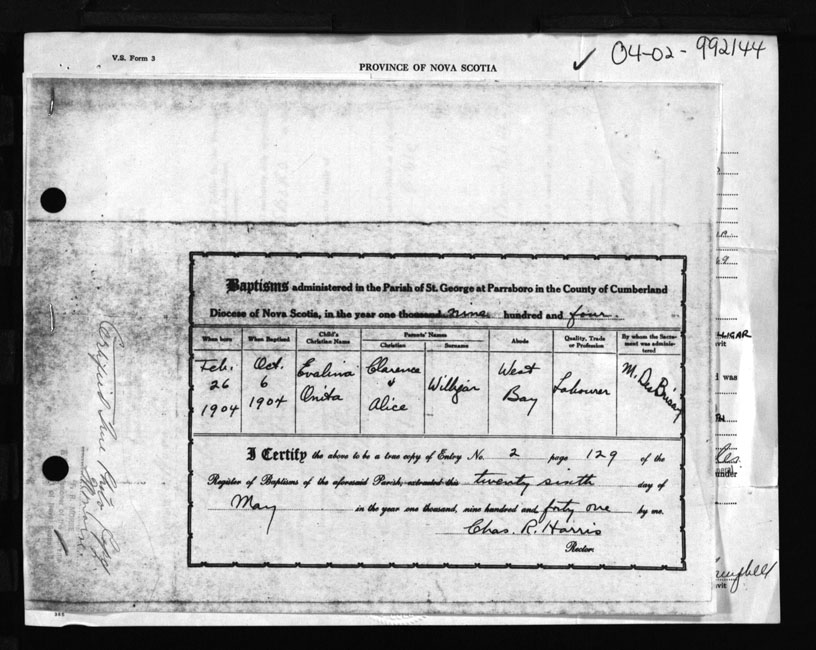 V.S. Form 3
PROVINCE OF NOVA SCOTIA
✓ 04-02-992144
Baptisms administered in the Parish of St. George at Parrsboro in the County of Cumberland
Diocese of Nova Scotia, in the year one thousand nine hundred and four.
When born When Baptized Child's Christian Name Parents' Names Christian Surname Abode Quality, Trade or Profession By whom the Sacrament was administered
Feb. 26 1904 Oct. 6 1904 Evalina Onita Clarence & Alice Willigar West Bay Labourer
I Certify the above to be a true copy of Entry No. 2 page 129 of the
Register of Baptisms of the aforesaid Parish, extracted this twenty sixth day of
May in the year one thousand, nine hundred and forty one by me.
Chas. R. Harris
Rector.
Certified True Photo Copy
LIGAR
was
under